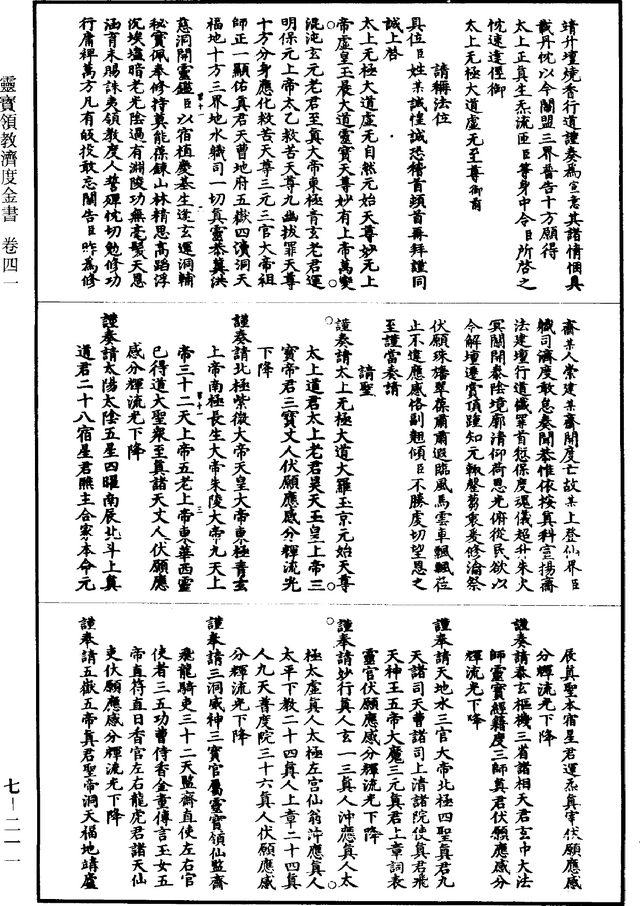 靖升壇境香行道謹奏爲宣意其諸情悃具
載丹忱以今關盟三界普告十方願得
太上正真生炁流匝臣等身中令臣所啓之
忱速達徑御
太上无極大道虛无至尊御前
請稱法位
具位臣姓某誠惶誠恐稽首頓首再拜謹同
誠上啓
太上无極大道虛无自然元始天尊妙无上
帝虛皇玉晨大道靈寶天尊妙有上帝萬變
混沌玄元老君至真大帝東極青玄老君運
明保元上帝太乙救苦天尊九幽拔罪天尊
十方分身應化救苦天尊三元三官大帝祖
師正一顯佑真君天曹地府五嶽四瀆洞天
福地十方三界地水職司一切真靈恭冀洪
慈洞開靈鑑臣以宿植慶基生逢玄運洞輔
祕寶佩奉修持莫能葆鍊山林精思高蹈浮
沉埃壒暗老光陰過有淵陵功無毫髮天恩
涵育未賜誅夷領教度人誓殫忱切勉修功
行庸裨萬方凡有皈投敢忘關告臣昨爲修
齋某人崇建某齋開度亡故某上登仙界臣
職司濟度敢怠奏聞恭惟依按真科宣揚齋
法建壇行道懺罪首愆保度魂儀超升朱火
冥關開泰陰境廓清仰荷恩光俯從民欲以
今解壇遷賞頂踵知元輒罄芻衷爰修淪祭
伏願珠旛翠葆肅肅遐臨風馬雲車飄飄莅
止不違應感恪副翹傾臣不勝虔切望恩之
至謹當奏請
請聖
謹奏請太上无極大道大羅玉京元始天尊
太上道君太上老君昊天玉皇上帝三
寶帝君三寶丈人伏願應感分輝流光
下降
謹奏請北極紫微大帝天皇大帝東極青玄
上帝南極長生大帝朱陵大帝九天上
帝三十二天上帝五老上帝東華西靈
已得道大聖衆至真諸天丈人伏願應
感分輝流光下降
謹奏請太陽太陰五星四曜南辰北斗上真
道君二十八宿星君照主合家本命元
辰真聖本宿星君運炁真宰伏願應感
分輝流光下降
謹奏請泰玄樞機三省諸相天君玄中大法
師靈寶經籍度三師真君伏願應感分
輝流光下降
謹奉請天地水三官大帝北極四聖真君九
天諸司天曹諸司上清諸院使真君飛
天神王五帝大魔三元真君上章詞表
靈官伏願應感分輝流光下降
謹奉請妙行真人玄一三真人沖應真人太
極太虛真人太極左宮仙翁沖應真人
太平下教二十四真人上章二十四真
人九天普度院三十六真人伏願應感
分輝流光下降
謹奉請三洞威神三寶官屬靈寶領仙監齋
飛龍騎吏三十二天監齋直使左右官
使者三五功曹侍香金童傳言玉女五
帝直符直日香官左右龍虎君諸天仙
吏伏願應感分輝流光下降
謹奉請五嶽五帝真君聖帝洞天福地靖廬
靈寶領教濟度金書 卷四一
七－二一一